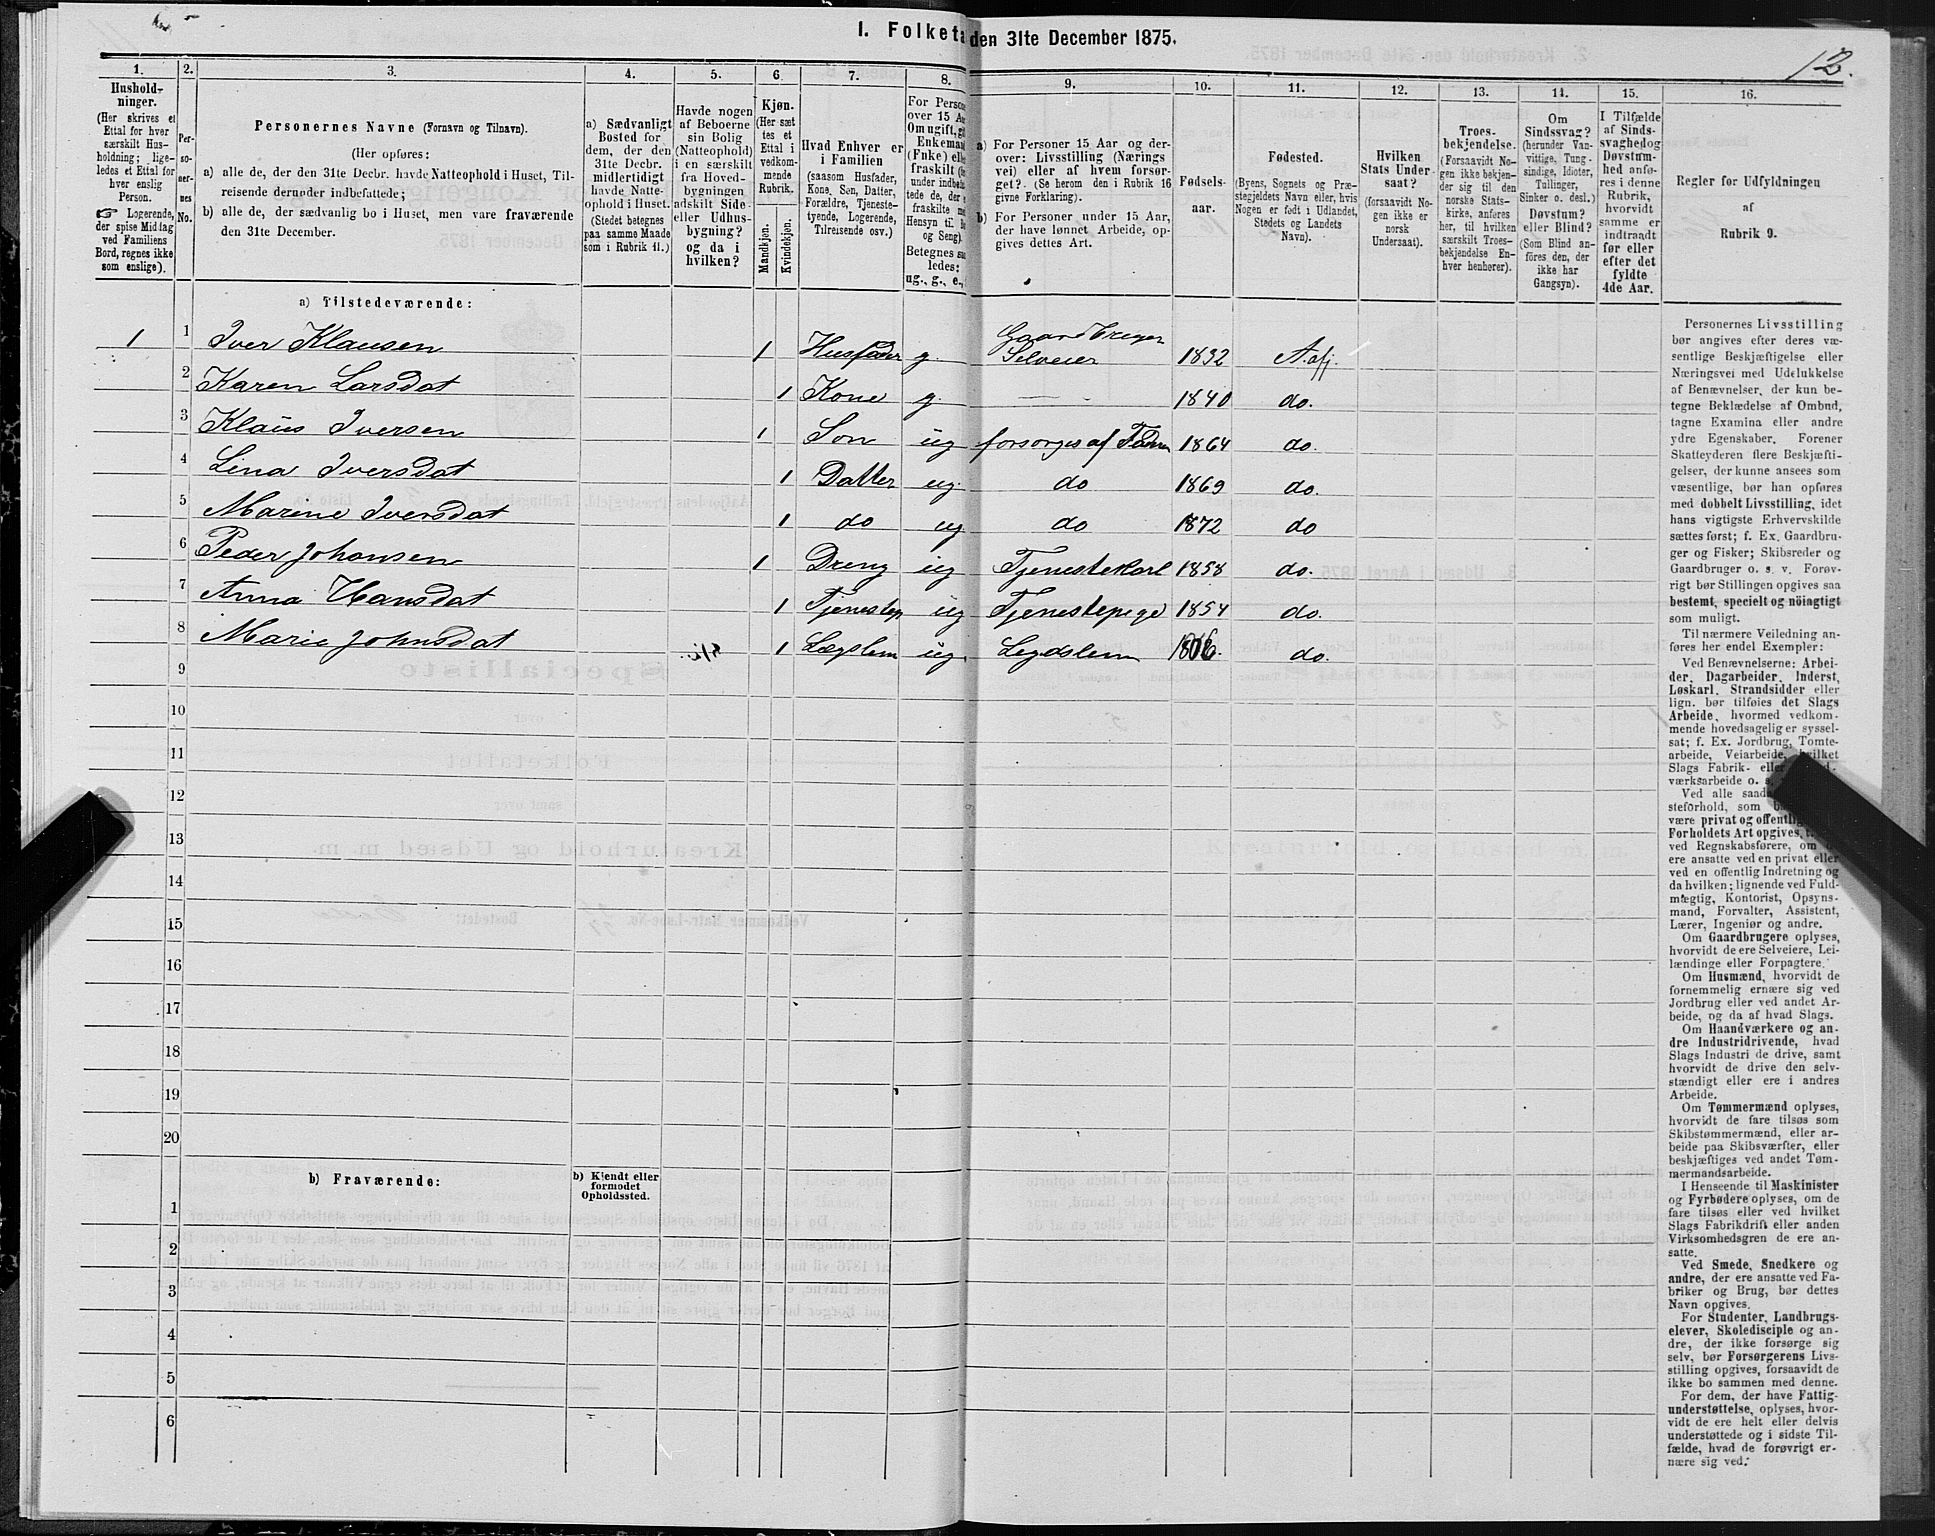 I. Folketa den 31te December 1875.
12.
1.
Hushold-
ninger.
(Her skrives et
Ettal for hver
særskilt Hus-
holdning; lige-
ledes et Ettal for
hver enslig
Person.
☞ Logerende,
der spise Middag
ved Familiens
Bord, regnes ikke
som enslige).
2.
Per-
so-
ner-
nes
No.
3.
Personernes Navne (Fornavn og Tilnavn).
(Her opføres:
a) alle de, der den 31te Decbr. havde Natteophold i Huset, Til-
reisende derunder indbefattede;
b) alle de, der sædvanlig bo i Huset, men vare fraværende
den 31te December.
4.
a) Sædvanligt
Bosted for
dem, der den
31te Decbr.
midlertidigt
havde Natte-
ophold i Huset.
(Stedet betegnes
paa samme Maade
som i Rubrik 11.)
5.
Havde nogen
af Beboerne
sin Bolig
(Natteophold)
i en særskilt
fra Hoved-
bygningen
adskilt Side-
eller Udhus-
bygning?
og da i
hvilken?
6.
Kjøn.
(Her sæt
tes et
Ettal i
vedkom-
mende
Rubrik.
Mandkjøn.
Kvindekjøn.
7.
Hvad Enhver er
i Familien
(saasom Husfader,
Kone, Søn, Datter,
Forældre, Tjeneste-
tyende, Logerende,
Tilreisende osv.)
8.
For Persone
over 15 Aa
Om ugift, gi
Enkemand
(Enke) elle
fraskilt
under indbe
tede de, der
fraskilte
Hensyn til
og Seng).
Betegnes saa
ledes:
ug., g., e.,
9.
a) For Personer 15 Aar og der-
over: Livsstilling (Nærings
vei) eller af hvem forsør-
get?. (Se herom den i Rubrik 16
givne Forklaring).
b) For Personer under 15 Aar,
der have lønnet Arbeide, op-
gives dettes Art.
10.
Fødsels-
aar.
11.
Fødested.
(Byens, Sognets og Præ-
stegjeldets Navn eller, hvis
Nogen er født i Udlandet,
Stedets og Landets
Navn).
12.
Hvilken
Stats Under-
saat?
(forsaavidt No-
gen ikke er
norsk
Undersaat).
13.
Troes-
bekjendelse.
(Forsaavidt No-
gen ikke bekjen-
der sig til den
norske Stats-
kirke, anføres
her, til hvilken
særskilt Troes-
bekjendelse En-
hver henhører).
14.
Om
Sindssvag?
(herunder Van-
vittige, Tung-
sindige, Idioter,
Tullinger,
Sinker o. desl.)
Døvstum?
eller Blind?
(Som Blind an-
føres den, der
ikke har
Gangsyn).
15.
I Tilfælde
af Sinds-
svaghed og
Døvstum-
hed anfø-
res i denne
Rubrik,
hvorvidt
samme er
indtraadt
før eller
efter det
fyldte
4de Aar.
16.
Regler for Udfyldningen
af
Rubrik 9.
a) Tilstedeværende:
1 1 Iver Klausen 1 Husfader g. Gaardbruger Selveier 1832 A.afj.
2 Karen Larsdat 1 Kone g. — 1840 do.
3 Klaus Iversen 1 Søn ug forsørges af Faderen 1864 do.
4 Lina Iversdat 1 Datter ug. do 1869 do.
5 Marine Iversdat 1 do ug do 1872 do
6 Peder Johansen 1 Dreng ug Tjenestekarl 1858 do.
7 Anna Hansdat 1 Tjenestep ug Tjenestepige 1854 do.
8 Marie Johnsdat 1 Lægslem ug. Legdslem do.
9
10
11
12
13
14
15
16
17
18
19
20
b) Fraværende:
b) Kjendt eller
formodet
Opholdssted.
1
2
3
4
5
6
Personernes Livsstilling
bør angives efter deres væ-
sentlige Beskjæftigelse eller
Næringsvei med Udelukkelse
af Benævnelser, der kun be-
tegne Beklædelse af Ombud,
tagne Examina eller andre
ydre Egenskaber. Forener
Skatteyderen flere Beskjæfti-
gelser, der kunne ansees som
væsentlige, bør han opføres
med dobbelt Livsstilling, idet
hans vigtigste Erhvervskilde
sættes først; f. Ex. Gaardbru-
ger og Fisker; Skibsreder og
Gaardbruger o. s. v. Forøv-
rigt bør Stillingen opgives saa
bestemt, specielt og nöiagtigt
som muligt.
Til nærmere Veiledning an-
føres her endel Exempler:
Ved Benævnelserne: Arbei-
der, Dagarbeider, Inderst,
Løskarl, Strandsidder eller
lign. bør tilføies det Slags
Arbeide, hvormed vedkom-
mende hovedsagelig er syssel-
sat; f. Ex. Jordbrug, Tomte-
arbeide, Veiarbeide, hvilket
Slags Fabrik- eller
værksarbeide o. s.
Ved alle saad
steforhold, som
være privat og offentlig
Forholdets Art opgives,
ved Regnskabsførere, om
ere ansatte ved en privat eller
ved en offentlig Indretning og
da hvilken; lignende ved Fuld-
mægtig, Kontorist, Opsyns-
mand, Forvalter, Assistent,
Lærer, Ingeniør og andre.
Om Gaardbrugere oplyses,
hvorvidt de ere Selveiere, Lei-
lændinge eller Forpagtere.
Om Husmænd, hvorvidt de
fornemmelig ernære sig ved
Jordbrug eller ved andet Ar-
beide, og da af hvad Slags.
Om Haandværkere og an-
dre Industridrivende, hvad
Slags Industri de drive, samt
hvorvidt de drive den selv-
stændigt eller ere i andres
Arbeide.
Om Tømmermænd oplyses,
hvorvidt de fare tilsøs som
Skibstømmermænd, eller ar-
beide paa Skibsværfter, eller
beskjæftiges ved andet Tøm-
mermandsarbeide.
I Henseende til Maskinister
og Fyrbødere oplyses, om de
fare tilsøs eller ved hvilket
Slags Fabrikdrift eller anden
Virksomhedsgren de ere an-
satte.
Ved Smede, Snedkere og
andre, der ere ansatte ved Fa-
briker og Brug, bør dettes
Navn opgives.
For Studenter, Landbrugs-
elever, Skoledisciple og an-
dre, der ikke forsørge sig
selv, bør Forsørgerens Livs-
stilling opgives, forsaavidt de
ikke bo sammen med denne.
For dem, der have Fattig-
understøttelse, oplyses, hvor-
vidt de ere helt eller delvis
understøttede og i sidste Til-
fælde, hvad de forøvrigt er-
nære sig ved.